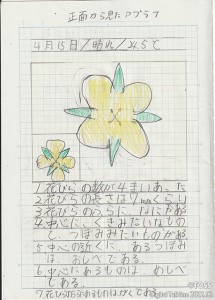 正面から見たアブラナ
4月15日/晴れ/24.5℃
1.花びらの数が4まいあった
2.花びらの長さは7mmくらい
3.花びらのうらに
4.中心に
つぼみみたいなものが
5.中心の近くに、あるつぼみ
は、おしべである。
6.中心にあるものは、めしべ
である。
7.花びらの
あるものはがくである。